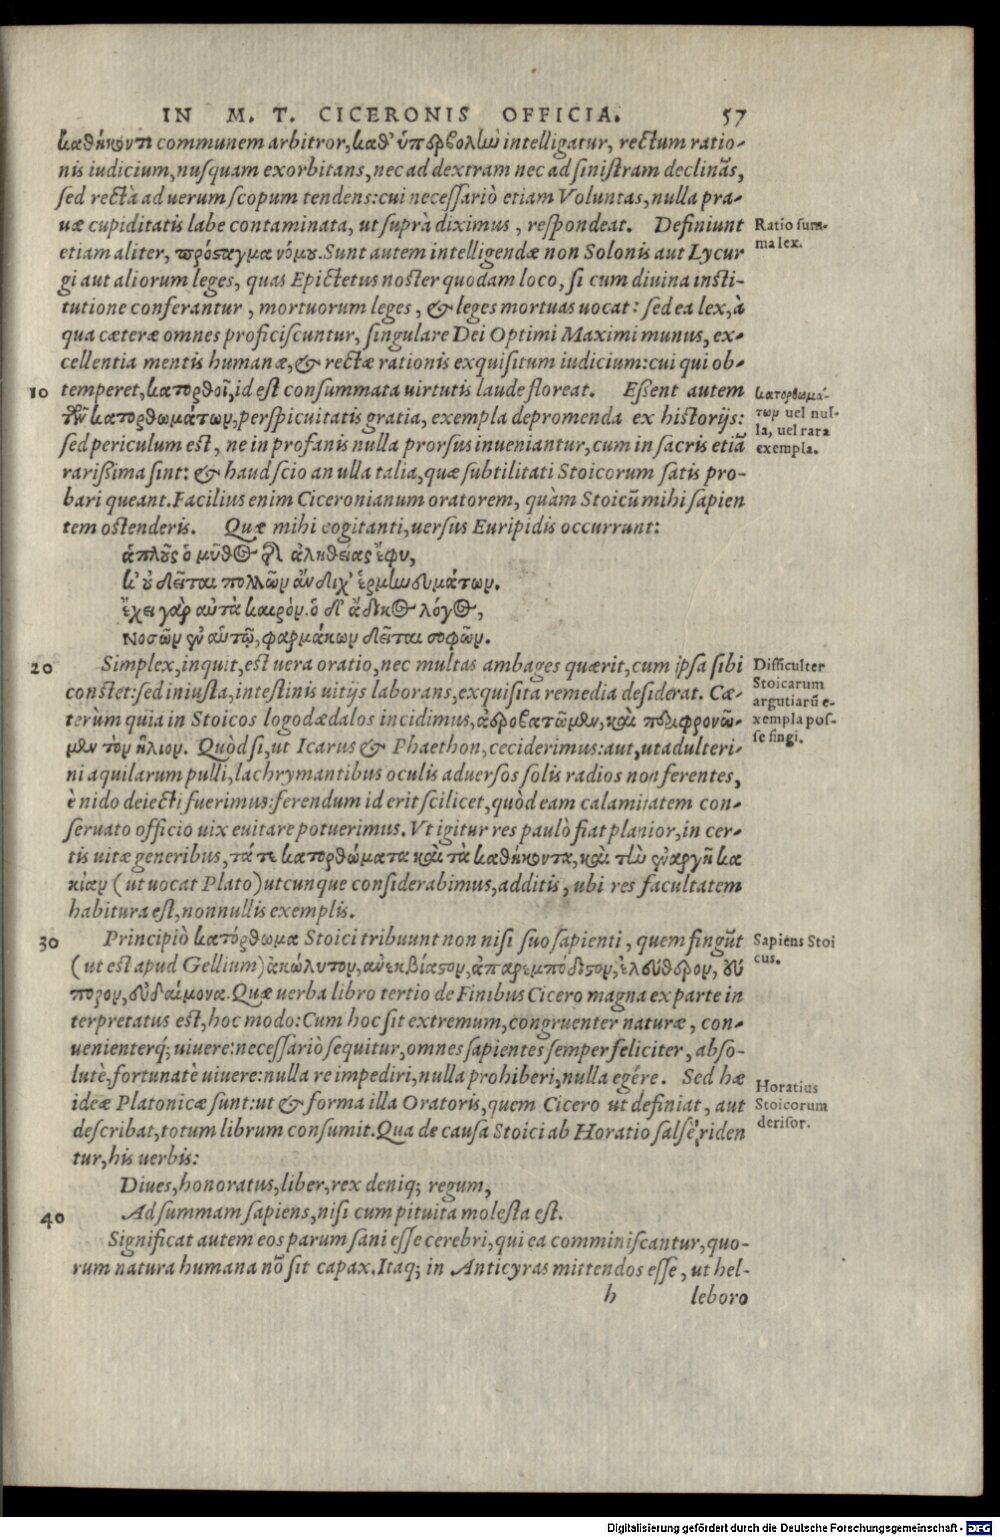 IN M. T. CICERONIS OFFICIA. 57
καθήκοντι communem arbitror, καθ' ὑπερβολὴν intelligatur, rectum ratio-
nis iudicium, nusquam exorbitans, nec ad dextram nec ad sinistram declinãs,
sed rectà ad uerum scopum tendens: cui necessariò etiam Voluntas, nulla pra-
uæ cupiditatis labe contaminata, ut suprà diximus, respondeat. Definiunt
Ratio sum-
ma lex.
etiam aliter, πρόσαγμα νόμου. Sunt autem intelligendæ non Solonis aut Lycur
gi aut aliorum leges, quas Epictetus noster quodam loco, si cum diuina insti-
tutione conferantur, mortuorum leges, & leges mortuas uocat: sed ea lex, à
qua cæteræ omnes proficiscuntur, singulare Dei Optimi Maximi munus, ex-
cellentia mentis humanæ, & rectæ rationis exquisitum iudicium: cui qui ob-
10 temperet, κατορθοῖ, id est consummata uirtutis laude floreat. Essent autem
κατορθωμά-
των uel nul-
la, uel rara
exempla.
τῶν κατορθωμάτων, perspicuitatis gratia, exempla depromenda ex historijs:
sed periculum est, ne in profanis nulla prorsus inueniantur, cum in sacris etiã
rarissima sint: & haud scio an ulla talia, quæ subtilitati Stoicorum satis pro-
bari queant. Facilius enim Ciceronianum oratorem, quàm Stoicũ mihi sapien
tem ostenderis. Quæ mihi cogitanti, uersus Euripidis occurrunt:
ἁπλοῦς ὁ μῦθος τῆς ἀληθείας ἔφυ,
κ' οὐ δεῖται πολλῶν ἂν διχ' ἑρμηνευμάτων.
ἔχει γὰρ αὐτὰ καιρόν. ὁ δ' ἄδικος λόγος,
νοσῶν ἐν αὑτῷ, φαρμάκων δεῖται σοφῶν.
20 Simplex, inquit, est uera oratio, nec multas ambages quærit, cum ipsa sibi
Difficulter
Stoicarum
argutiarũ e-
xempla pos-
se fingi.
constet: sed iniusta, intestinis uitijs laborans, exquisita remedia desiderat. Cæ-
terùm quia in Stoicos logodædalos incidimus, ἀεροβατῶμεν, καὶ περιφρονῶ-
μεν τὸν ἥλιον. Quòd si, ut Icarus & Phaethon, ceciderimus: aut, ut adulteri-
ni aquilarum pulli, lachrymantibus oculis aduersos solis radios non ferentes,
è nido deiecti fuerimus: ferendum id erit scilicet, quòd eam calamitatem con-
seruato officio uix euitare potuerimus. Vt igitur res paulò fiat planior, in cer-
tis uitæ generibus, τά τε κατορθώματα καὶ τὰ καθήκοντα, καὶ τὴν ἐναργῆ κα
κίαν (ut uocat Plato) utcunque considerabimus, additis, ubi res facultatem
habitura est, nonnullis exemplis.
30 Principiò κατόρθωμα Stoici tribuunt non nisi suo sapienti, quem fingũt
Sapiens Stoi
cus.
(ut est apud Gellium) ἀκώλυτον, ἀνεκβίαστον, ἀπαρεμπόδιστον, ἐλεύθερον, εὔ
πορον, εὐδαίμονα. Quæ uerba libro tertio de Finibus Cicero magna ex parte in
terpretatus est, hoc modo: Cum hoc sit extremum, congruenter naturæ, con-
uenienterq́; uiuere: necessariò sequitur, omnes sapientes semper feliciter, abso-
lutè, fortunatè uiuere: nulla re impediri, nulla prohiberi, nulla egére. Sed hæ
Horatius
Stoicorum
derisor.
ideæ Platonicæ sunt: ut & forma illa Oratoris, quem Cicero ut definiat, aut
describat, totum librum consumit. Qua de causa Stoici ab Horatio salsè riden
tur, his uerbis:
Diues, honoratus, liber, rex deniq; regum,
40 Ad summam sapiens, nisi cum pituita molesta est.
Significat autem eos parum sani esse cerebri, qui ea comminiscantur, quo-
rum natura humana nõ sit capax. Itaq; in Anticyras mittendos esse, ut hel-
h leboro
Digitalisierung gefördert durch die Deutsche Forschungsgemeinschaft - DFG